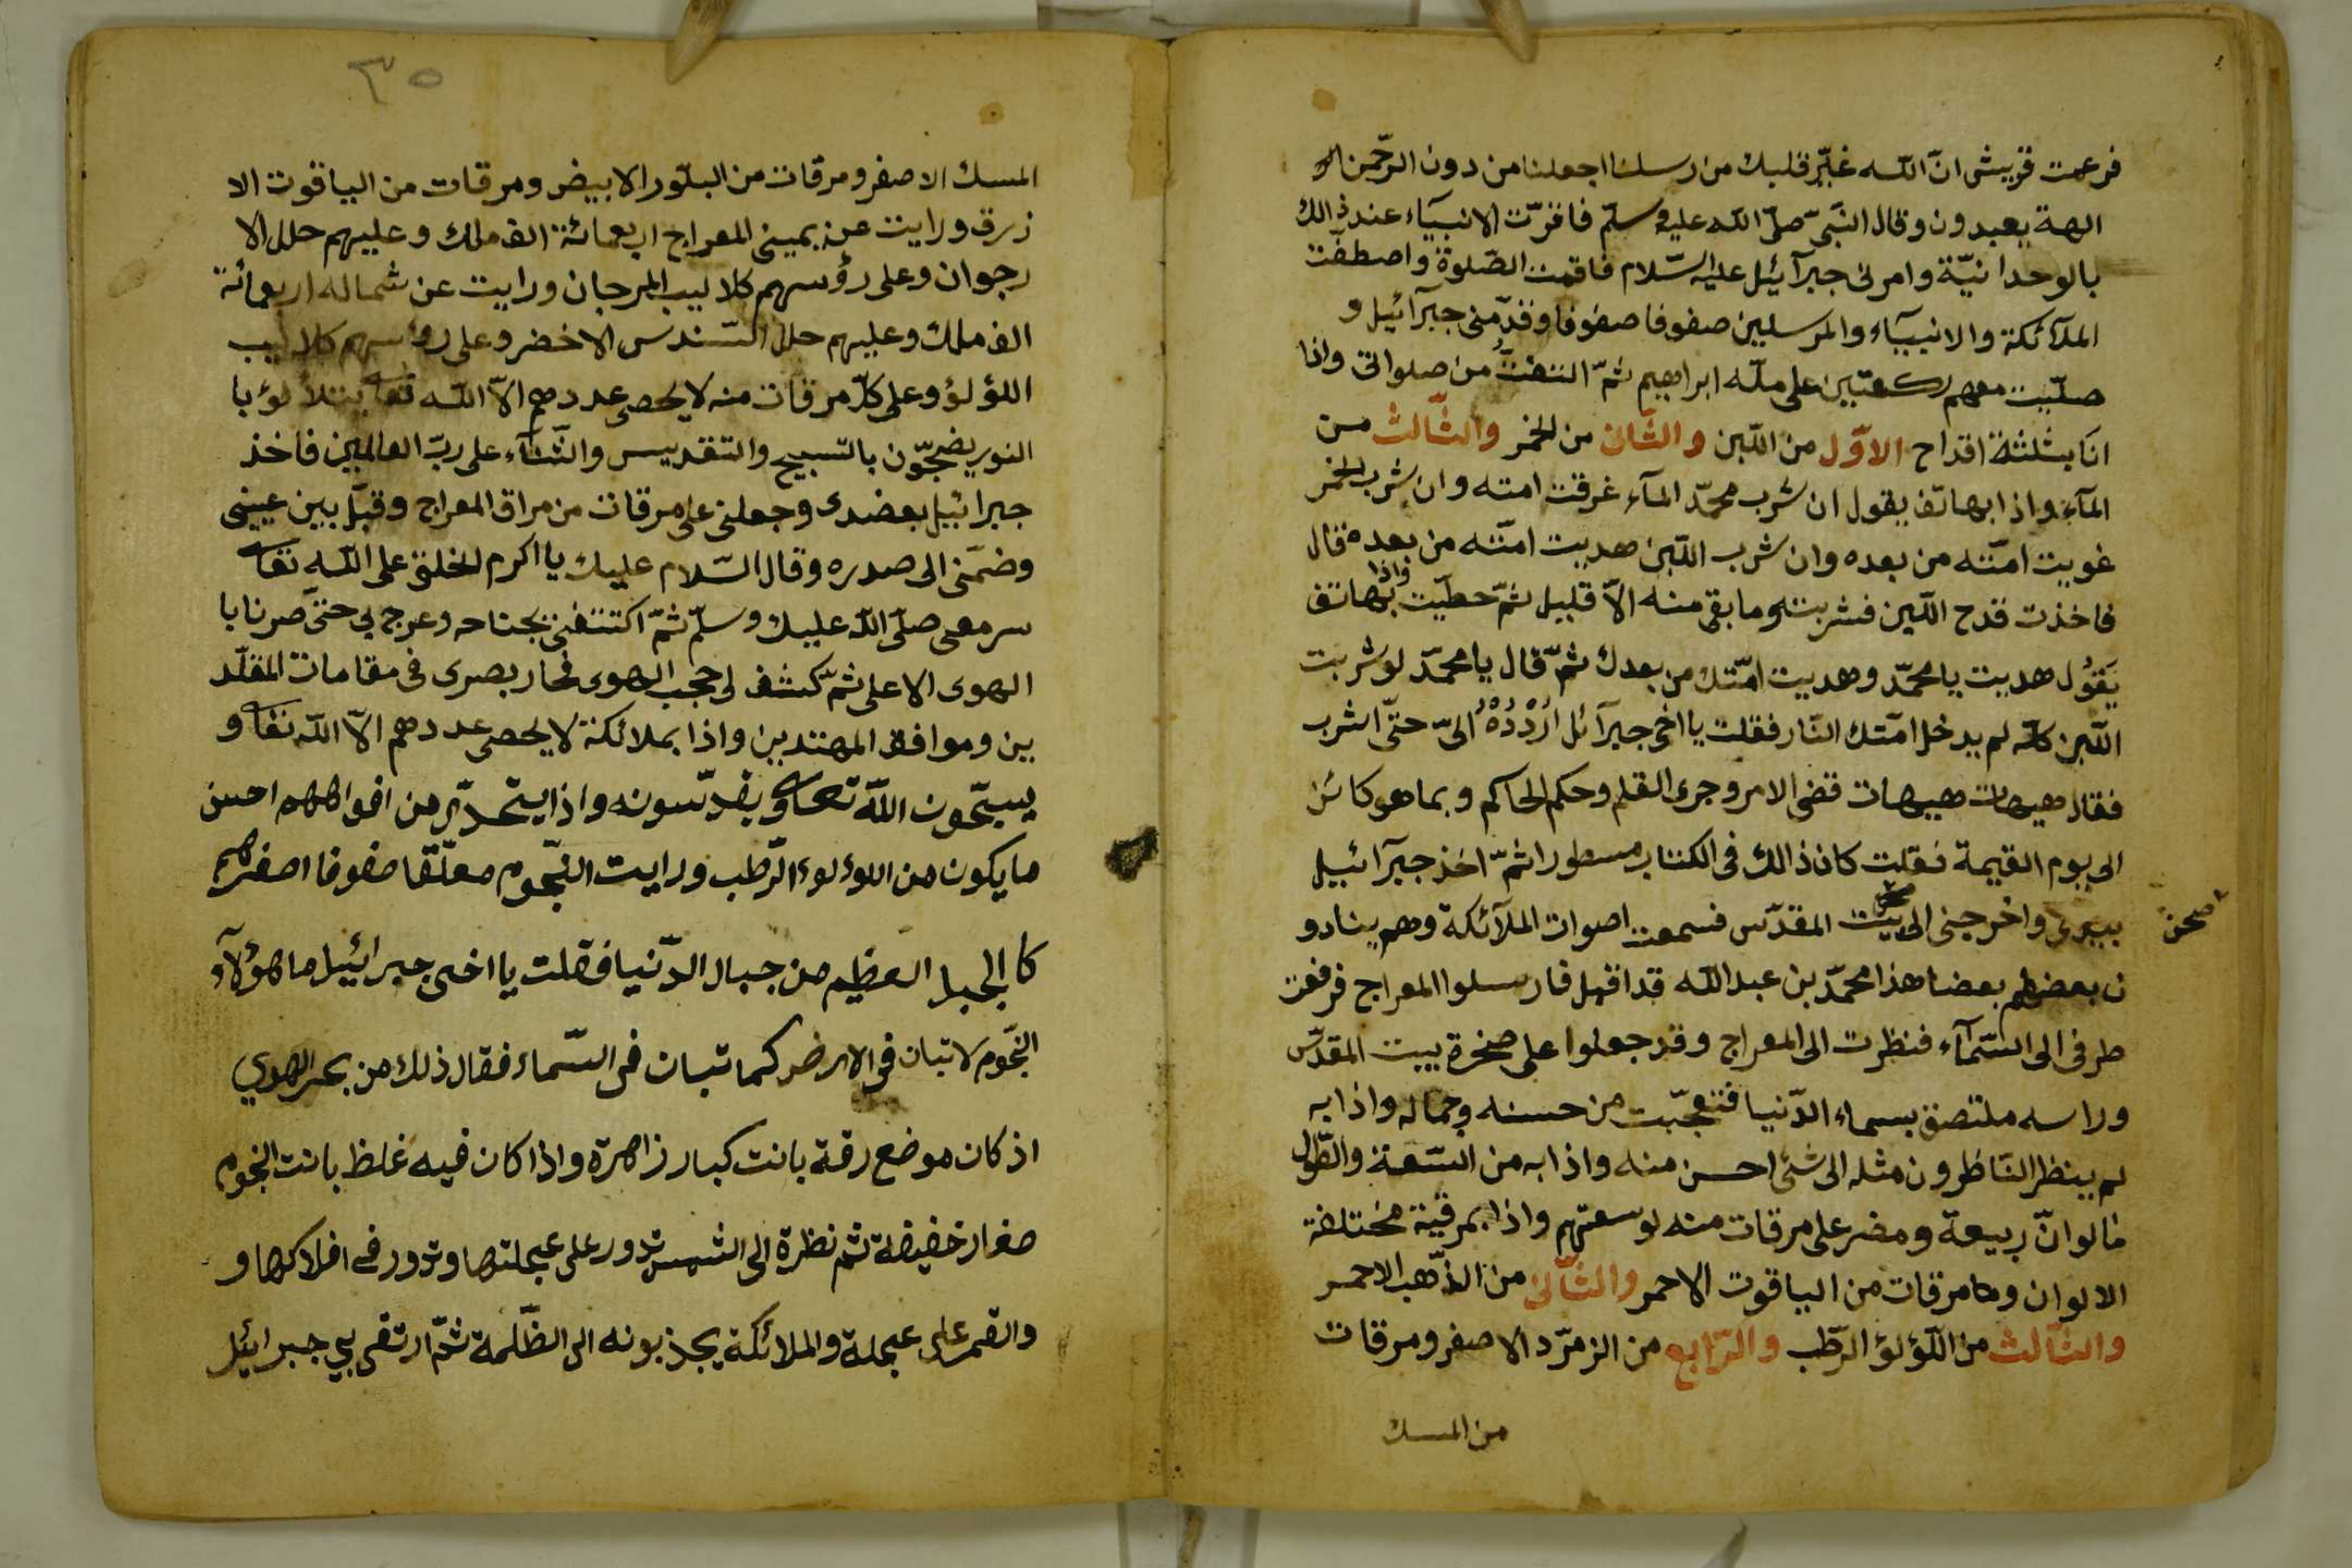 فزعمت قريش انّ اللّه غيّر قلبك من رسلنا اجعلنا من دون الرّحمن
الهة يعبدون وقال النّبىّ صلّى اللّه عليه وسلّم فاقرّت الانبيآء عند ذالك
بالوحدانيّة وامرنى جبرآئيل عليه السّلام فاقمت الصّلوة واصطفّت
الملآئكة والانبيآء والمرسلين صفوفا صفوفا وقدّمنى جبرآئيل و
صلّيت معهم ركعتين على ملّه ابراهيم ثمّ التفتُّ من صلواتى واذا
انا بثلثة اقداح الاوّل من اللّبن والثّانى من الخمر والثّالث من
المآء واذا بهاتف يقول ان شرب محمّد المآء غرقت امته وان شرب الخمر
غويت امّته من بعده وان شرب اللّبن هديت امّته من بعده قال
فاخذت قدح اللّبن فشربته وما بقى منه الاّ قليل ثمّ حطّيت واذا بهاتف
يَقوُل هديت يا محمّد وهديت امّتك من بعدك ثمّ قال يا محمّد لو شربت
اللّبن كلّه لم يدخل امّتك النّار فقلت يا اخى جبرآئل ارْدُدْهُ الىّ حتّى اشرب
فقال هيهات هيهات قضى الامر وجرى القلم وحكم الحاكم وبما هو كائن
الى يوم القيمة فقلت كان ذالك فى الكتاب مسطورا ثمّ اخذ جبرآئيل
بيدى واخرجنى الى بيت المقدّس فسمعت اصوات الملآئكة وهم ينادو
صحن
ن بعضهم بعضا هذا محمّد بن عبد اللّه قد اقبل فارسلوا المعراج فرفعت
طرفى الى السّمآء فنظرت الى المعراج وقد جعلوا على صخرة بيت المقدّس
وراسه ملتصق بسماء الدّنيا فتعجّبت من حسنه وجماله واذا به
لم ينظر النّاظرون مثله الى شئ احسن منه واذا به من السّعة والطّول
فالوانّ ربيعة ومضر على مرقات منه لوسعتهم واذا بمرقية مختلفة
الالوان ومرقات من الياقوت الاحمر والثّانى من الذّهب الاحمر
والثّالث من اللّؤلؤ الرّطب والرّابع من الزمرّد الاصفر ومرقات
من المسك
٣٥
المسك الاصفر ومرقات من البلّور الابيض ومرقات من الياقوت الا
زرق ورايت عن يمينى المعراج اربعمائة الف ملك وعليهم حلل الا
رجوان وعلى رؤسهم كلاليب المرجان ورايت عن شماله اربعمائة
الف ملك وعليهم حلل السّندس الاخضر وعلى رؤسهم كلاليب
اللؤلؤ وعلى كلّ مرقات منه لا يحصى عددهم الاّ اللّه تعا يتلألؤ با
النور يضجّون بالتّسبيح والتقديس والثّنآء على ربّ العالمين فاخذ
جبرائيل بعضدى وجعلنى على مرقات من مراق المعراج وقبّل بين عينى
وضمّنى الى صدره وقال السّلام عليك يا اكرم الخلق على اللّه تعا
سر معى صلّى اللّه عليك وسلّم ثمّ اكتنفنى بجناحه وعرج بى حتّى صرنا با
الهوى الاعلى ثمّ كشف لى حجب الهوى فحار بصرى فى مقامات المقلّد
ين وموافق المهتدين واذا بملائكة لا يحصى عددهم الاّ اللّه تعا و
يسبّحون اللّه تعا ويقدّسونه واذا يتحدّر من افواههم احسن
ما يكون من اللؤلوء الرّطب ورايت النّجوم معلّقا صفوفا اصغرهم
كالجبل العظيم من جبال الدّنيا فقلت يا اخى جبرائيل ما هؤلآء
النّجوم لا تبان فى الارض كما تبان فى السّماء فقال ذلك من بحر الهوي
اذ كان موضع رقة بانت كبار زاهرة واذا كان فيه غلظ بانت النجوم
صغار خفيفة ثم نظرة الى الشمس تدور على عجلتها وتدور فى افلاكها و
والقمر على عجلة والملائكة يجذبونه الى الظّلمة ثمّ ارتقى بي جبرائيل